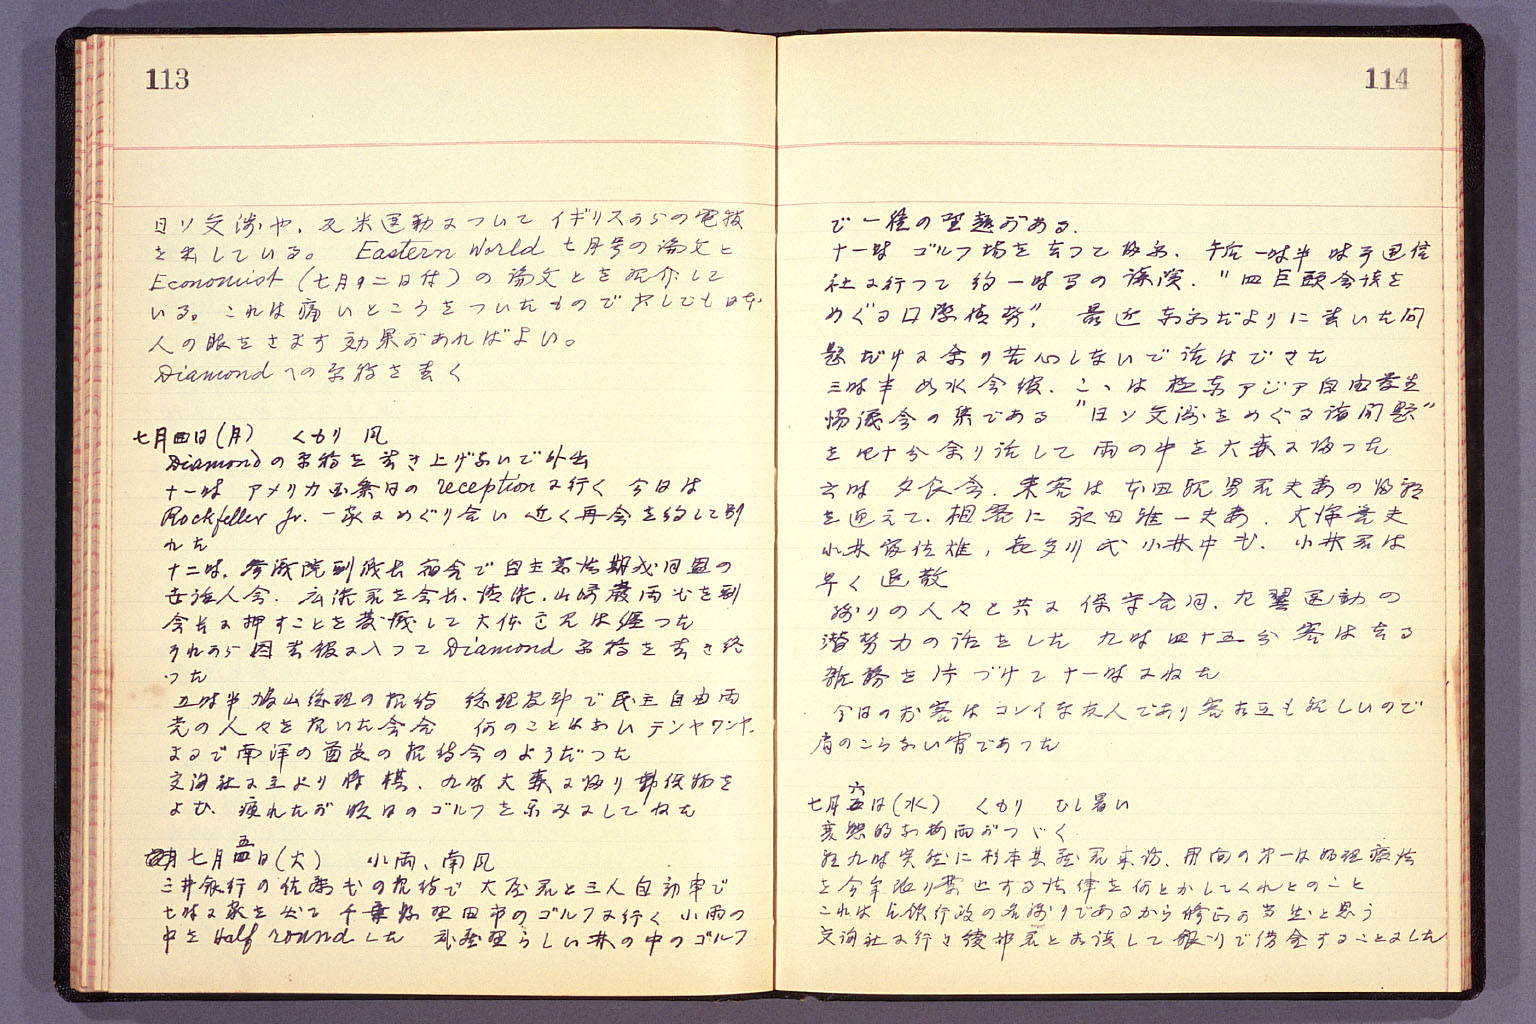 113
日ソ交渉や、反米運動について イギリスからの電報
を出している。 Eastern World 七月号の論文と
Economist (七月二日付) の論文とを紹介して
いる。これは痛いところをついたもので 少しでも日本
人の眼をさます効果があればよい。
Diamondへの原稿を書く
七月四日(月) くもり 風
Diamondの原稿を書き上げないで外出
十一時 アメリカ 日の reception に行く 今日は
Rockfeller Jr. 一家にめぐり会い 近く再会を約して別
れた
十二時、参議院副議長宿舎で自主憲法期成同盟の
世話人会、広瀬君を会長、 山崎巌両氏を副
会長に押すことを して大体
それから図書館に入って Diamond 原稿を書き終
った
五時半 鳩山総理の招待 総理官邸で民主自由両
党の人々を招いた会合 何のことはない テンヤワンヤ、
まるで南洋の酋長の招待会のようだった
交詢社に立より将棋、九時大森に帰り 物を
よむ、疲れたが 明日のゴルフを楽みにしてねた
七月五日(火) 小雨、南風
三井銀行の佐藤氏の招待で 大屋君と三人自動車で
七時に家を出て 千葉県野田市のゴルフに行く 小雨の
中を Half round した 武蔵野らしい林の中のゴルフ
114
で一種の野趣がある、
十一時 ゴルフ場を立って帰京、午后一時半 時事通信
社に行って 約一時間の講演、"四巨頭会談を
めぐる国際情勢"、 最近 だよりに書いた問
題だけに余り苦心しないで話はできた
三時半 如水会館、こゝは極東アジア自由
協議会の集である "日ソ交渉をめぐる諸問題"
を四十分余り話して 雨の中を大森に帰った
六時 夕食会、来客は本田親男君夫妻の帰朝
を迎えて、相客に 永田雅一夫妻、大 夫
小林 佐雄、長谷川氏 小林中氏、小林君は
早く退散
残りの人々と共に 保守合同、左翼運動の
潜勢力の話をした 九時四十五分 客は去る
雑務を片づけて十一時にねた
今日のお客はコレイな友人であり客 も親しいので
肩のこらない宵であった
七月六日(水) くもり むし暑い
変態的な梅雨がつづく
朝九時突然に杉本 君来訪、用向の 一は 療法
を今年限り禁止する法律を何とかしてくれとのこと
これは 行政の名残りであるから修正が当然と思う
交詢社に行き綾部君と相談して 銀行で借金することにした